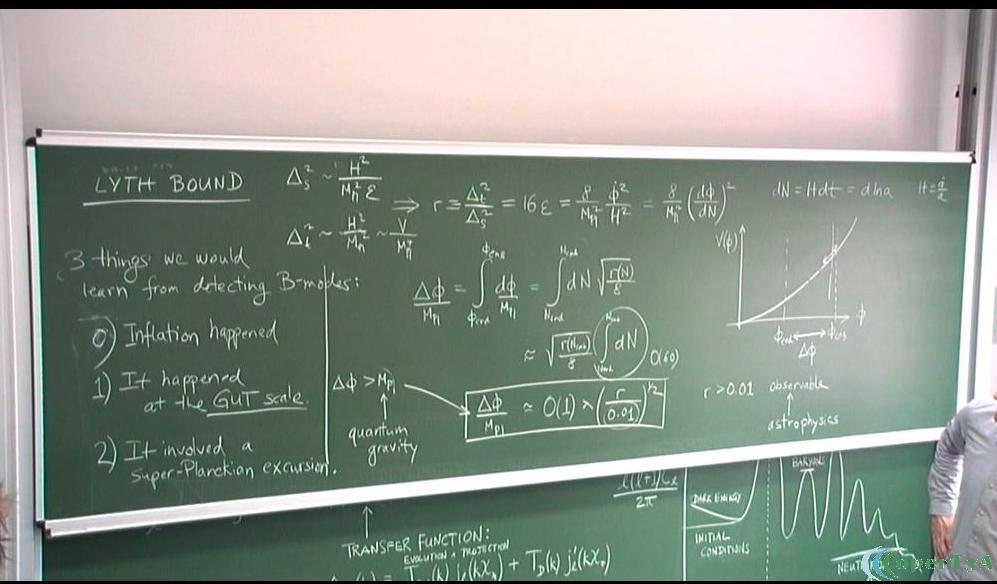 LYTH BOUND
Δ_s² ~ H² / M_Pl² ε
Δ_t² ~ H² / M_Pl² ~ V / M_Pl⁴
⇒ r ≡ Δ_t² / Δ_s² = 16ε = 8/M_Pl² φ̇²/H² = 8/M_Pl² (dφ/dN)²
dN = Hdt = dlna
H = ȧ/a
3 things we would
learn from detecting B-modes:
0) Inflation happened
1) It happened
at the GUT scale.
2) It involved a
Super-Planckian excursion.
Δφ/M_Pl = ∫ dφ/M_Pl = ∫ dN √(r(N)/8)
≈ ∫ dN O(60)
Δφ > M_Pl
↑
quantum
gravity
Δφ/M_Pl ≃ O(1) × (r/0.01)^1/2
V(φ)
φ
Δφ
r > 0.01 observable
↑
astrophysics
TRANSFER FUNCTION:
EVOLUTION + PROJECTION
l(l+1)C_l / 2π
DARK ENERGY
INITIAL
CONDITIONS
BARYONS